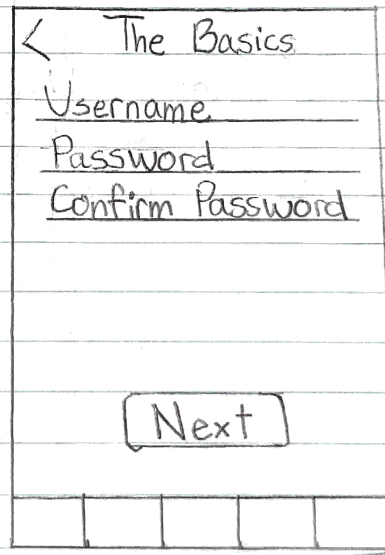 < The Basics
Username
Password
Confirm Password
Next